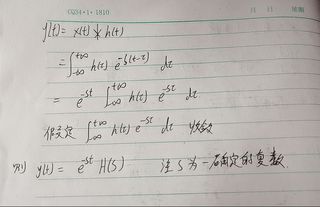 CQ34·1·1810 月 日 星期
y(t) = x(t) * h(t)
= ∫_{-∞}^{+∞} h(τ) e^{-s(t-τ)} dτ
= e^{-st} ∫_{-∞}^{+∞} h(τ) e^{-sτ} dτ
假定 ∫_{-∞}^{+∞} h(τ) e^{-sτ} dτ 收敛
则 y(t) = e^{-st} H(s) 注 S 为一确定的复数.